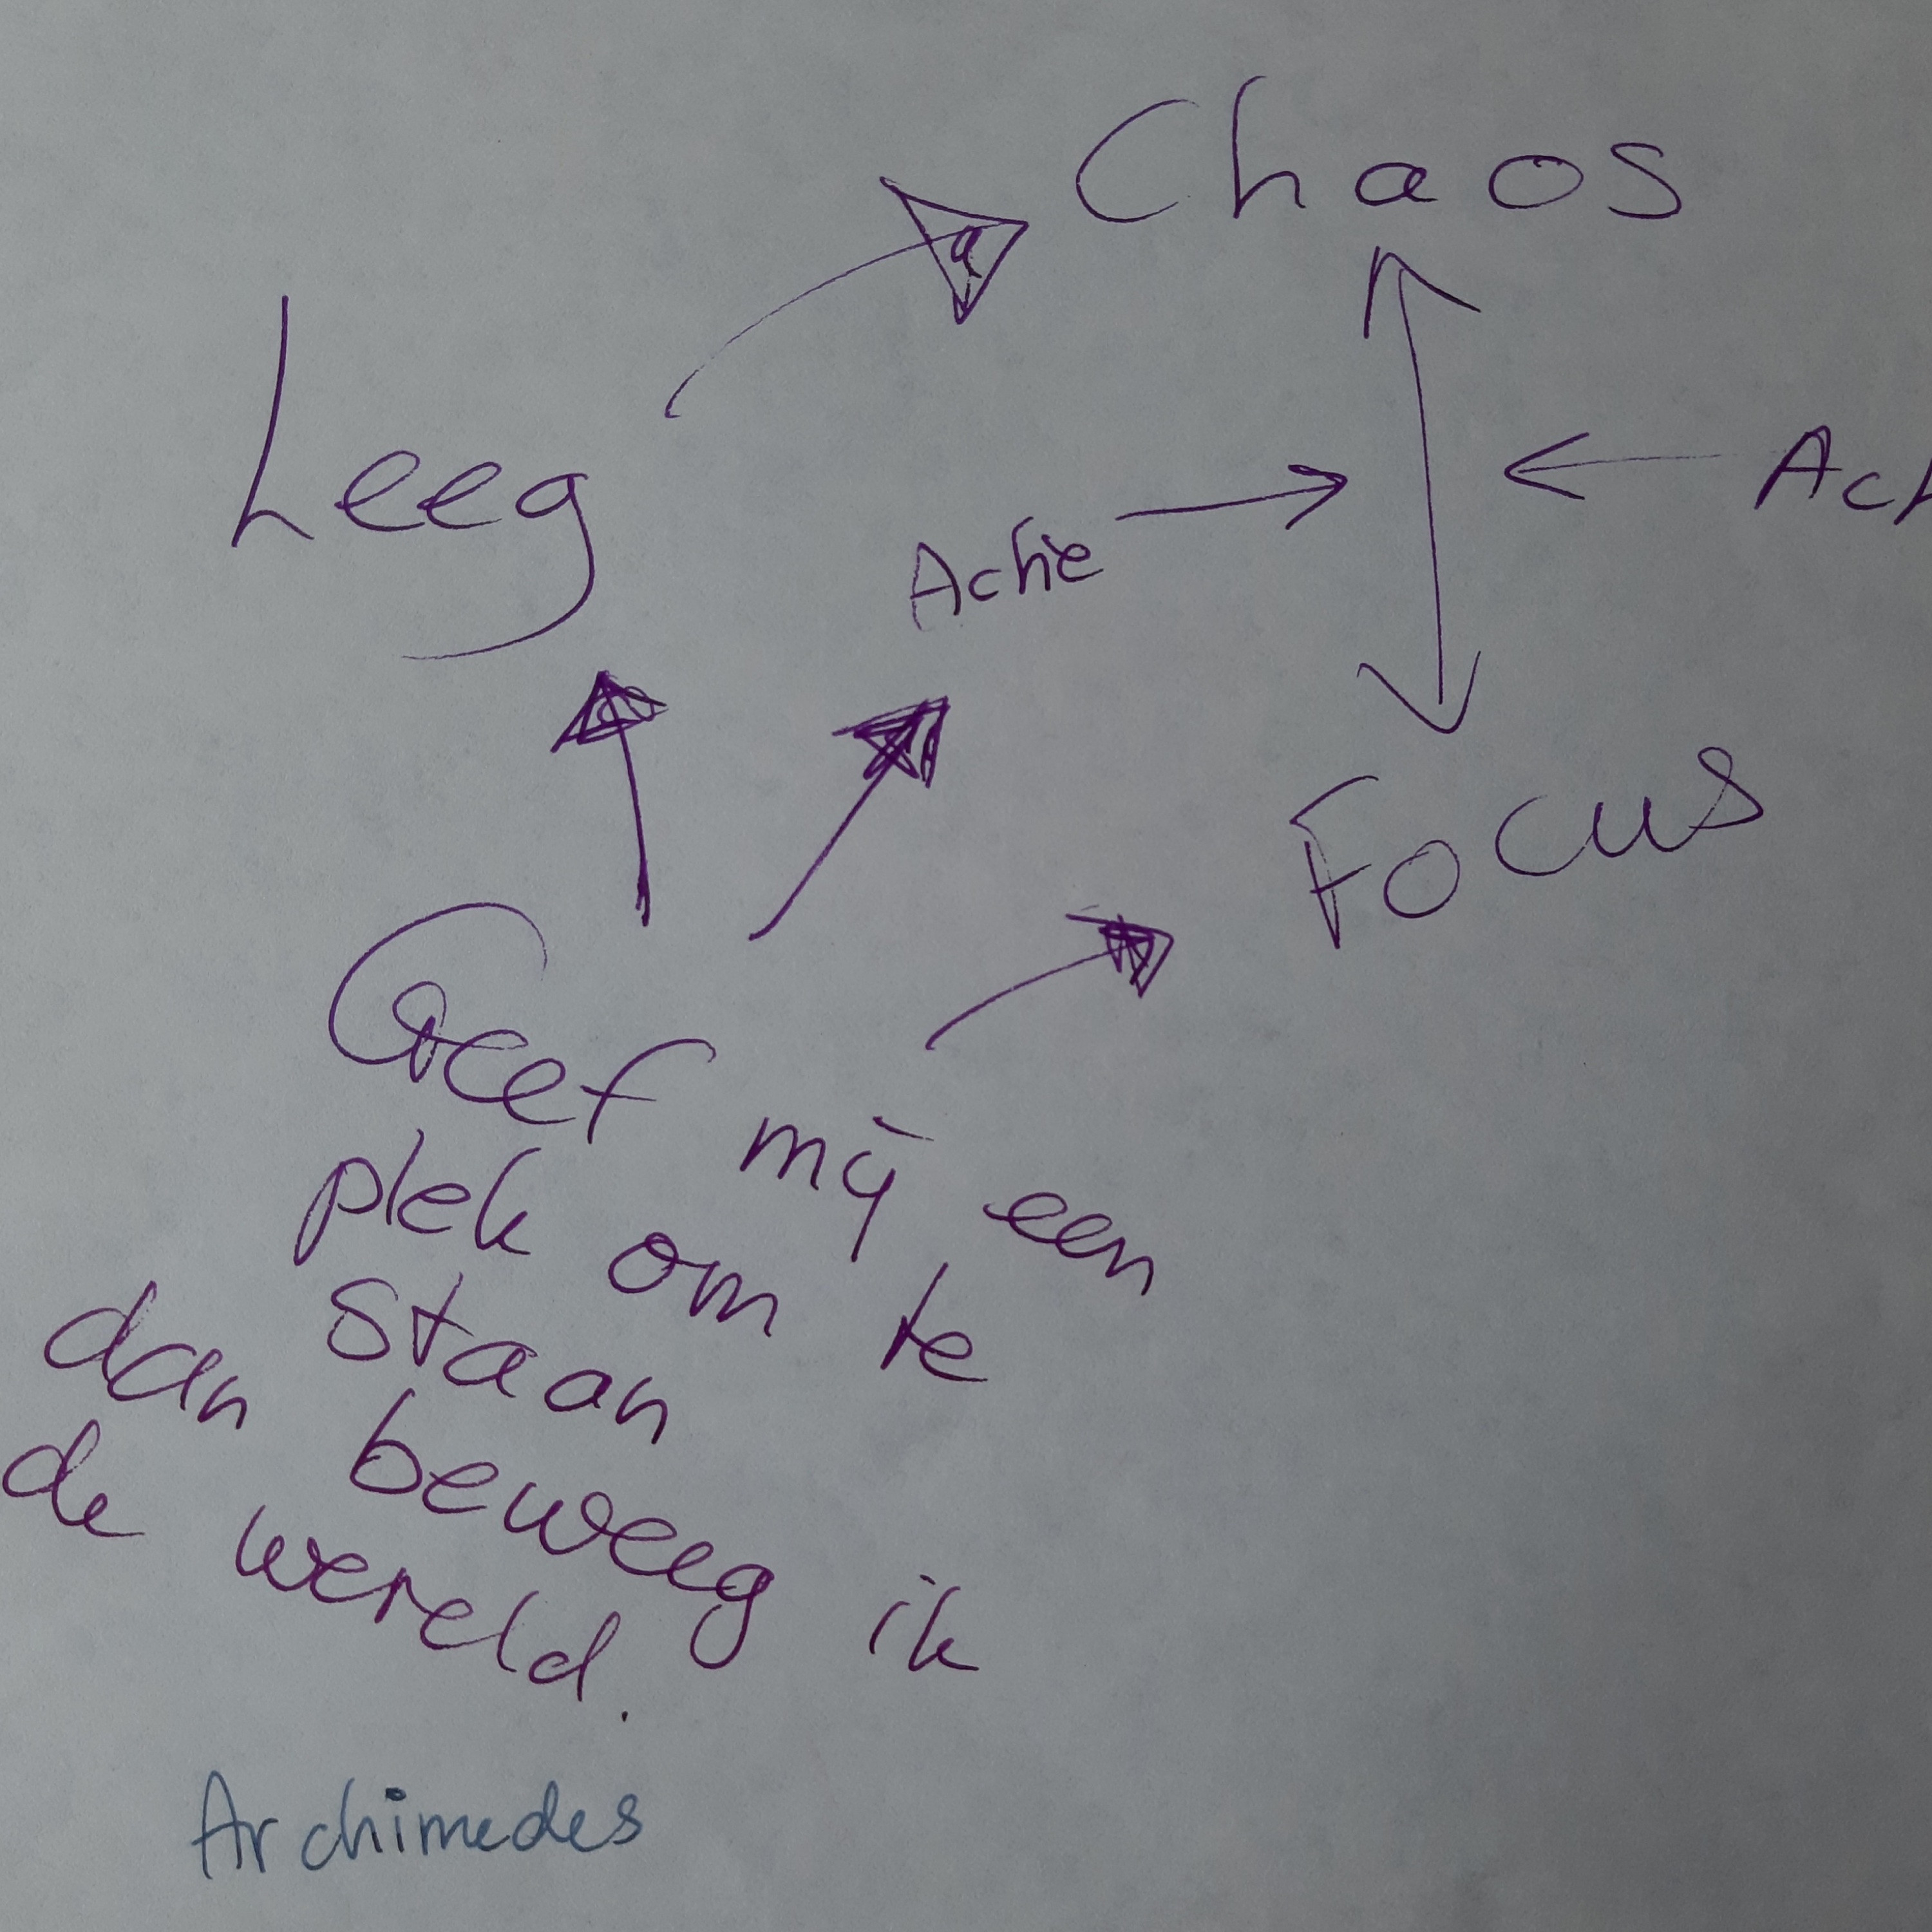 Chaos
Leeg
Actie
Focus
Geef mij een
plek om te
staan
dan beweeg ik
de wereld.
Archimedes